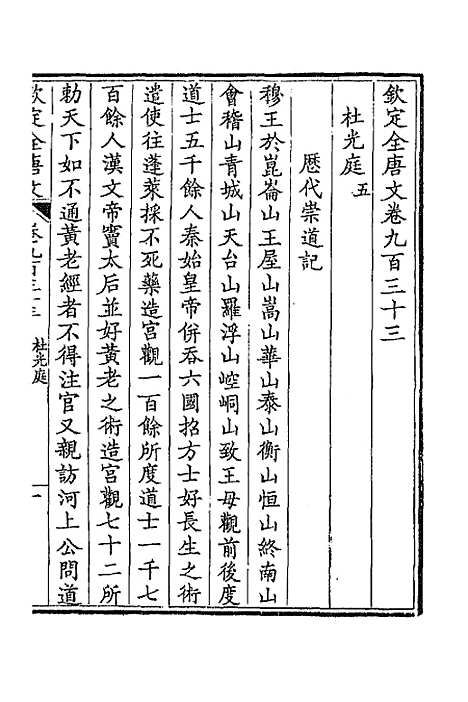 欽定全唐文卷九百三十三
杜光庭 五
歷代崇道記
穆王於崑崙山王屋山嵩山華山泰山衡山恒山終南山
會稽山青城山天台山羅浮山崆峒山致王母觀前後度
道士五千餘人秦始皇帝併吞六國招方士好長生之術
遣使往蓬萊採不死藥造宮觀一百餘所度道士一千七
百餘人漢文帝竇太后並好黃老之術造宮觀七十二所
勅天下如不通黃老經者不得注官又親訪河上公問道
欽定全唐文 卷九百三十三 杜光庭 一